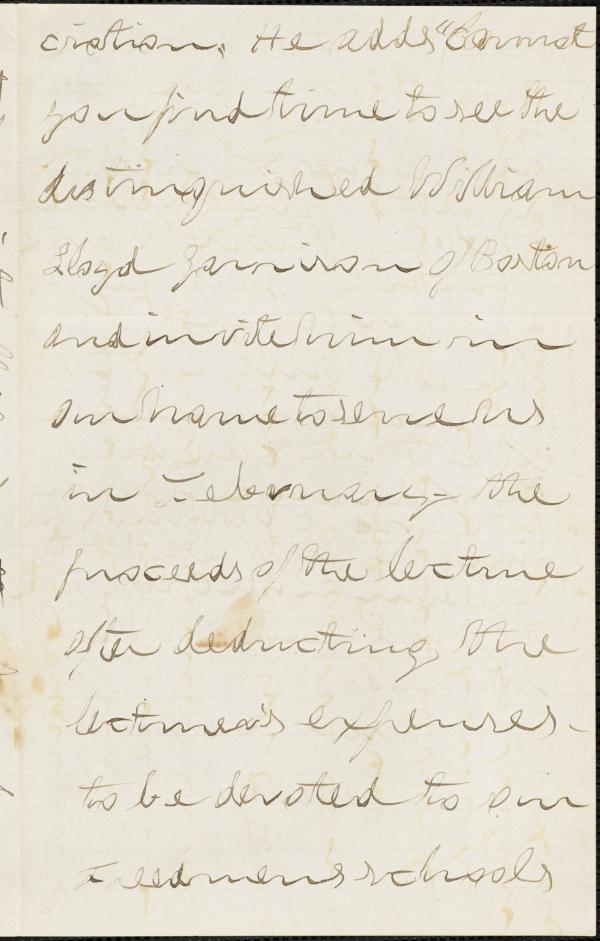 ciation. He adds "Cannot
you find time to see the
distinguished William
Lloyd Garrison of Boston
and invite him in
our name to serve us
in February - the
proceeds of the lecture
after deducting the
lecturer's expenses -
to be devoted to our
Freedmens schools